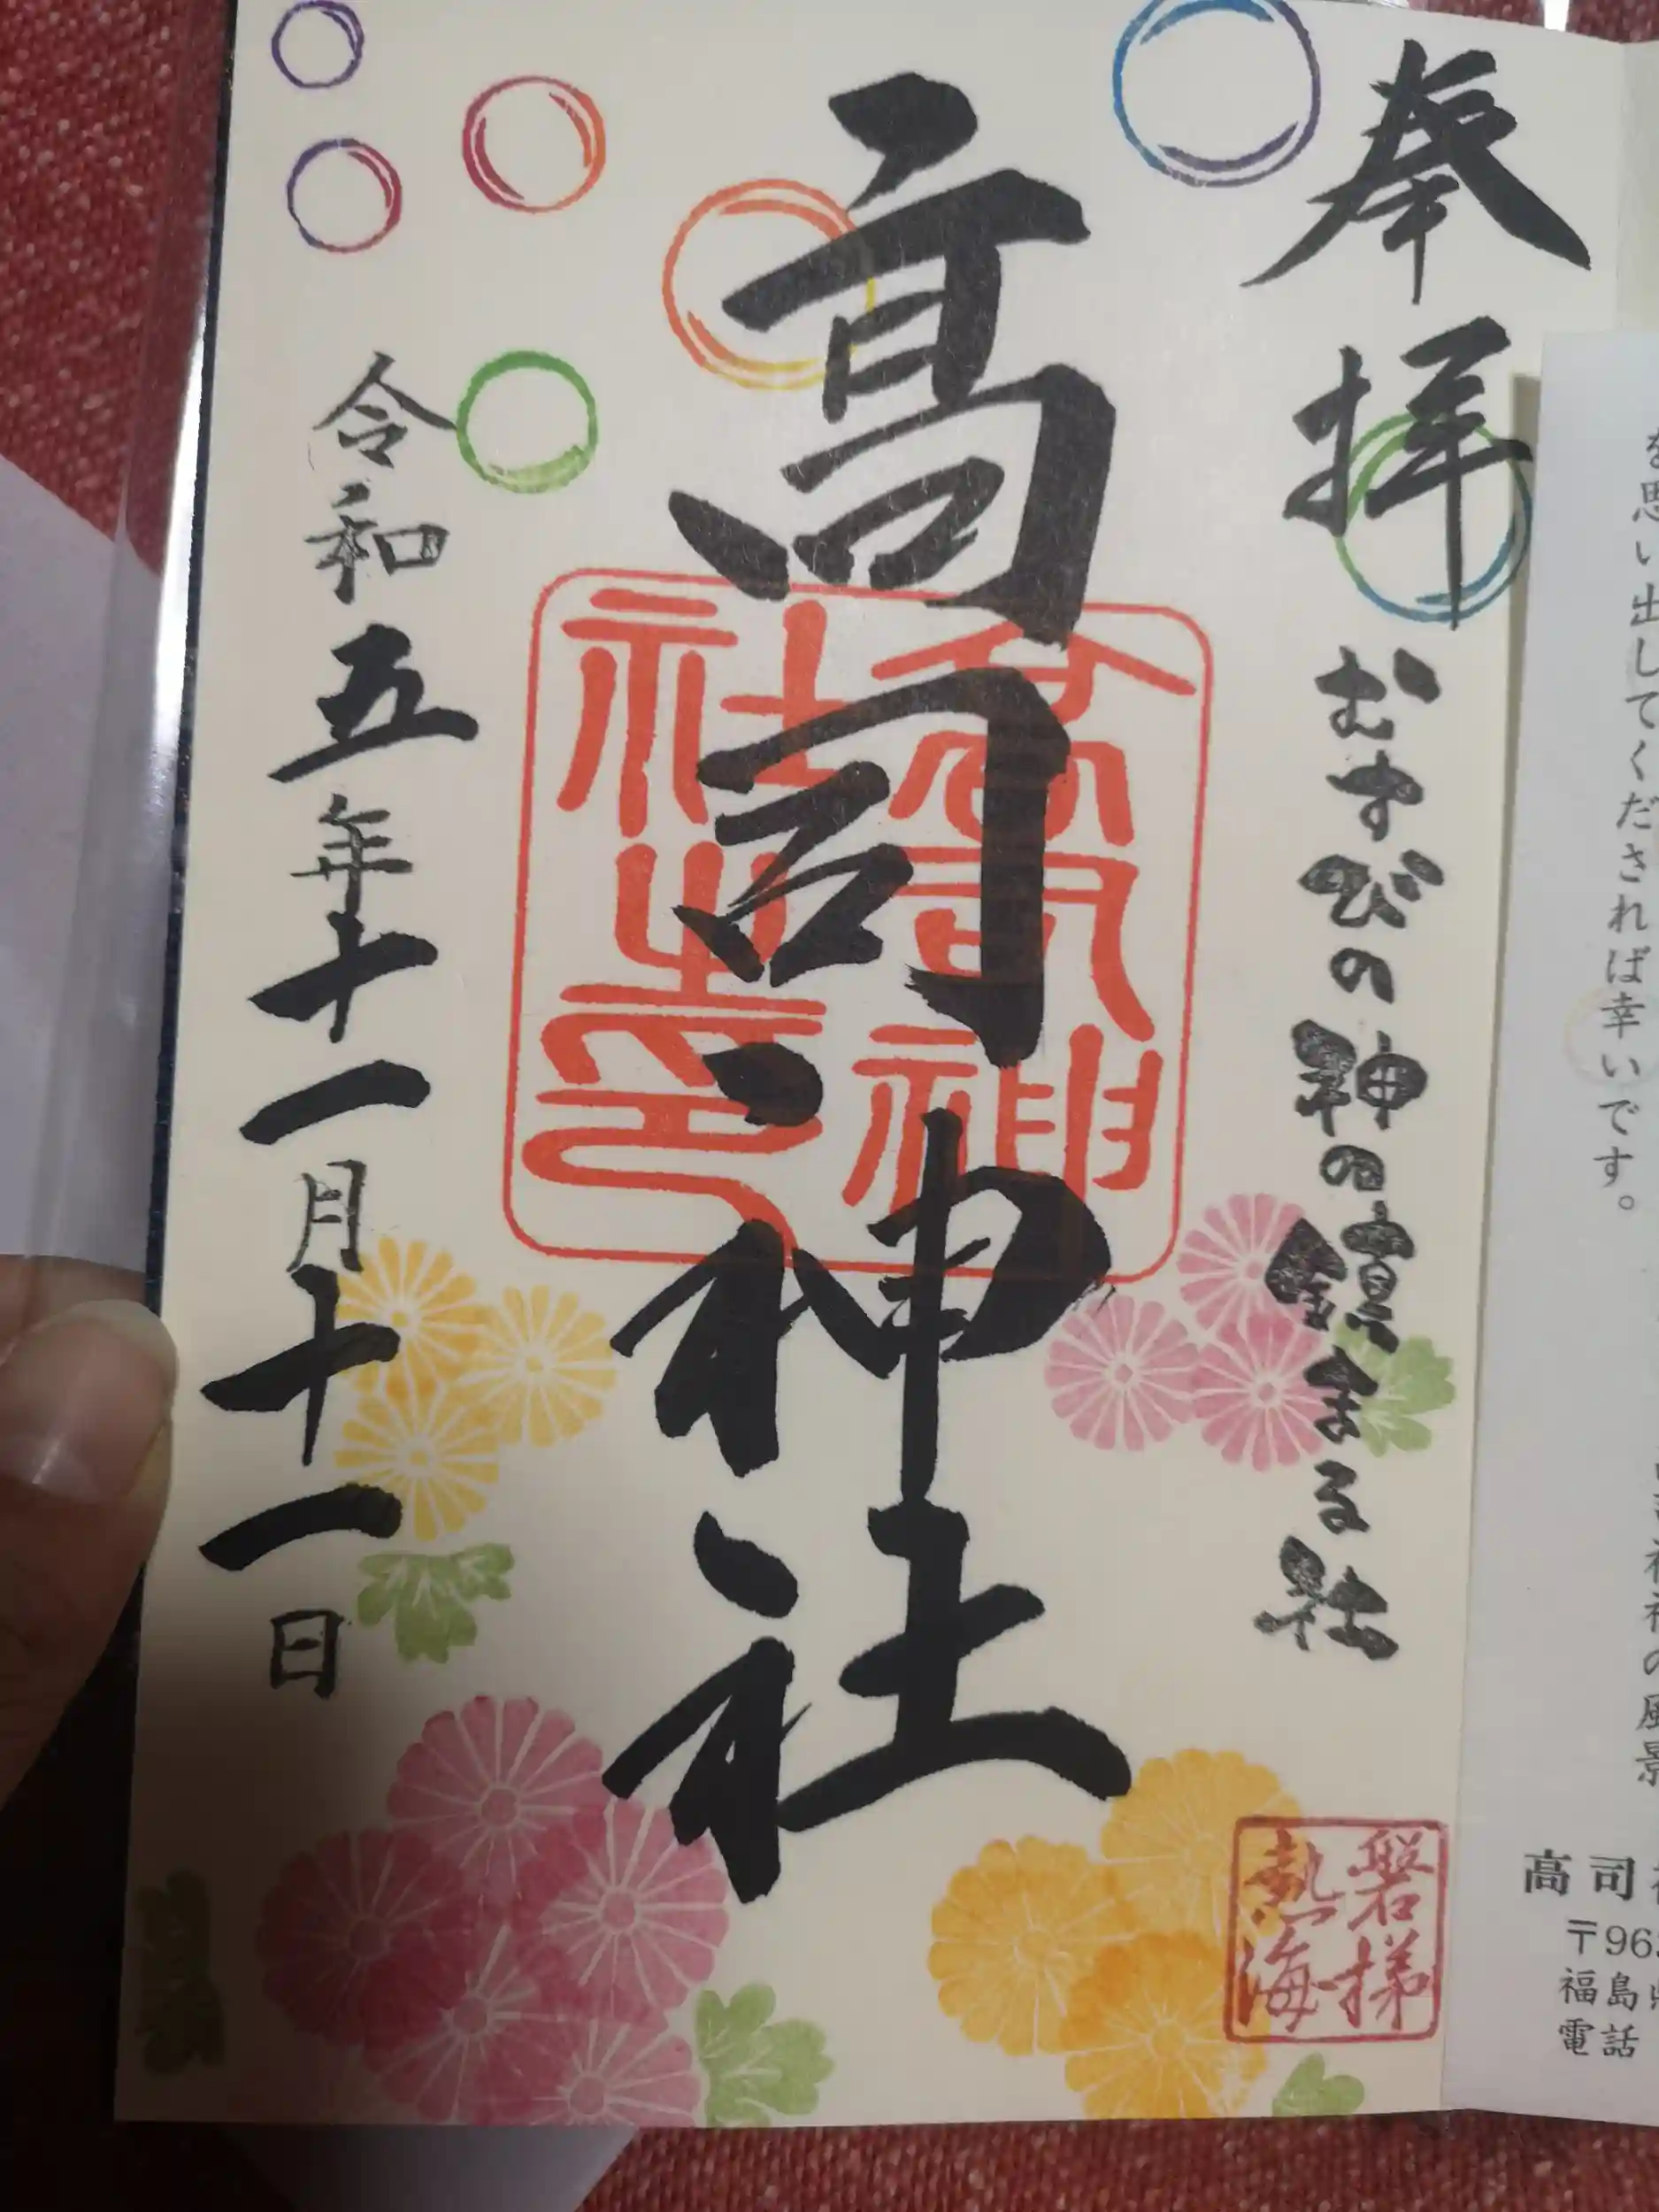 を思い出してくだされば幸いです。
の風景
高司
〒96
福島
電話
奉拝
むすびの神の鎮まる社
磐梯
熱海
高司神社
高司神
社之印
令和五年十一月十一日